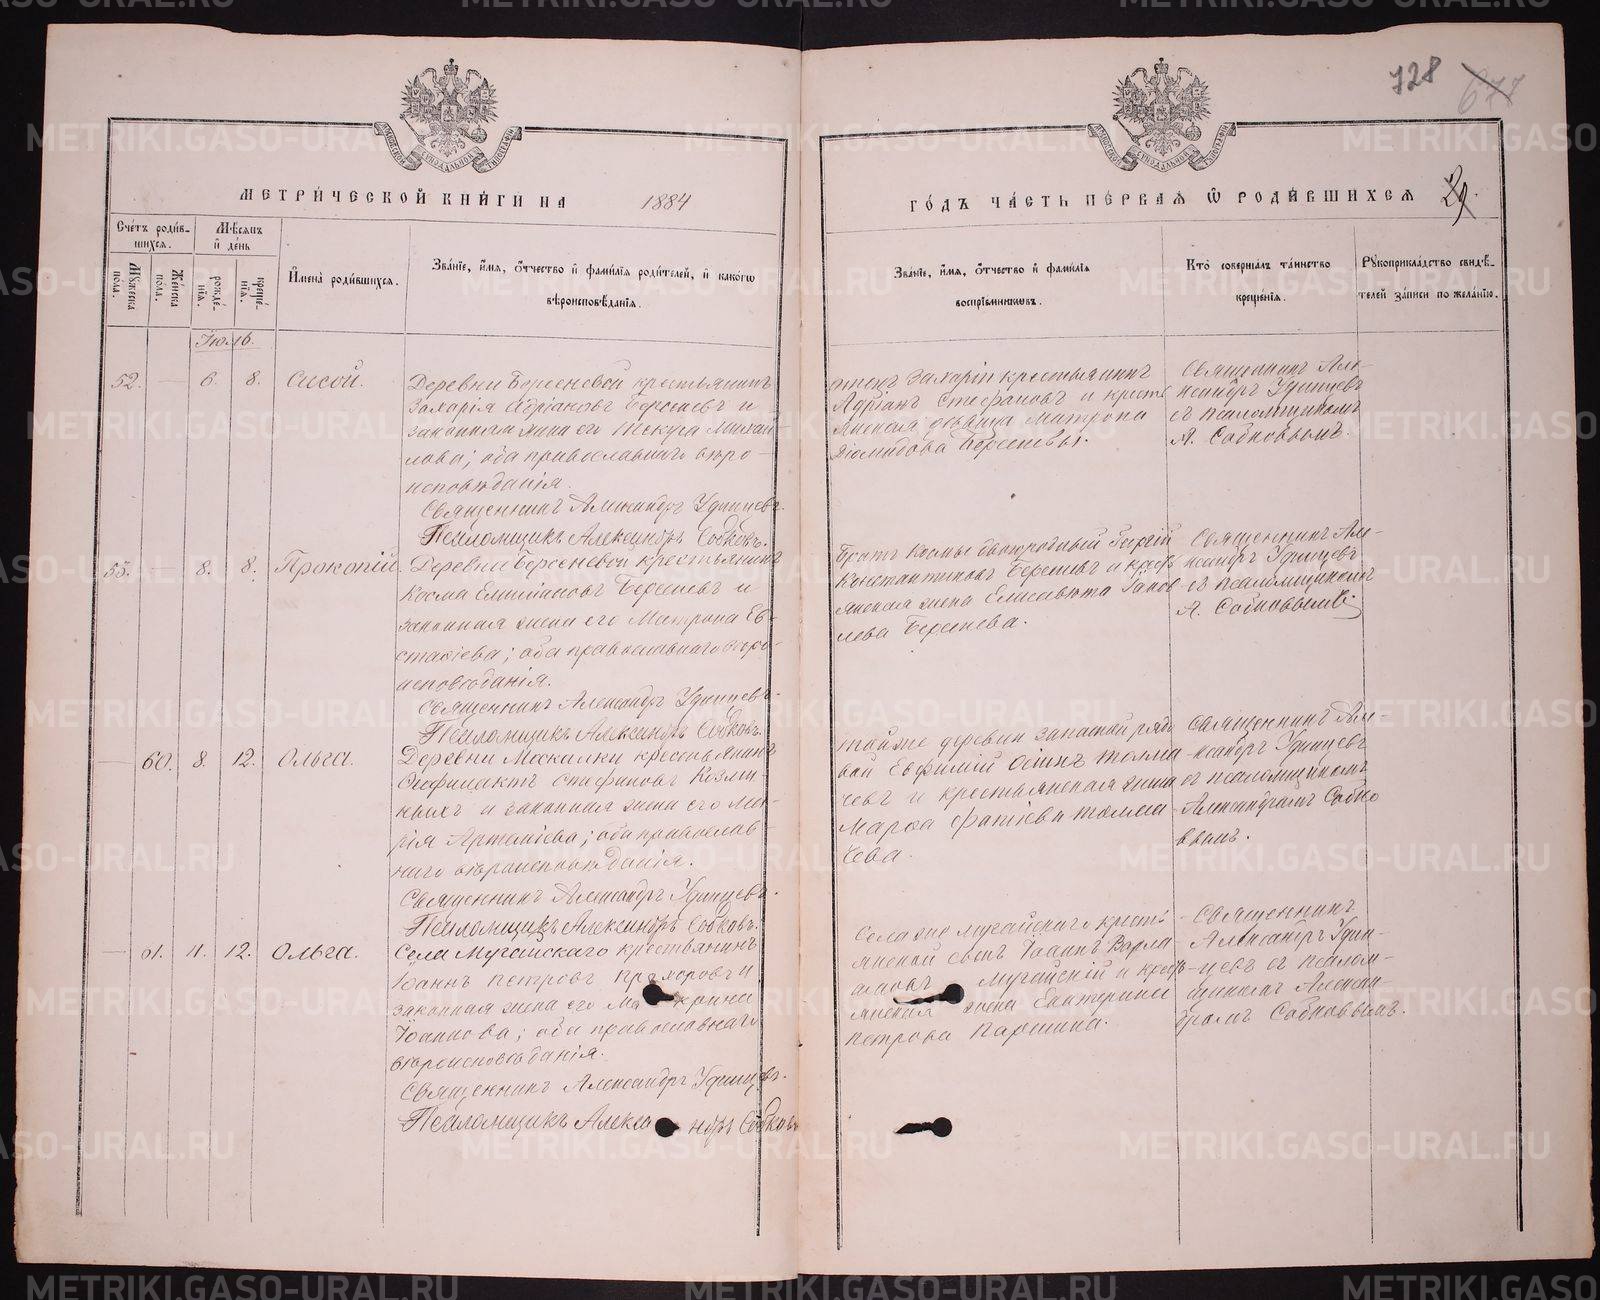 728 677
МЕТРИ́ЧЕСКОЙ КНИ́ГИ НА 1884
ГО́ДЪ ЧА́СТЬ ПЕ́РВАѦ Ѡ РОДИ́ВШИХСѦ 29.
Сче́тъ роди́в-
шихся.
Мѣ́сяцъ
и҆ де́нь
Мꙋ́жеска пола.
Же́нска пола.
рожде́нїя.
креще́нїя.
И҆мена̀ роди́вшихся.
Зва́нїе, и҆́мя, ѻ҆́тчество и҆ фами́лїя роди́телей, и҆ како́гѡ
вѣроисповѣ́данїя.
Зва́нїе, и҆́мя, ѻ҆́тчество и҆ фами́лїя
воспрїе́мникѡвъ.
Кто̀ соверша́лъ та́инство
креще́нїя.
Рꙋкоприкла́дство свидѣ́-
телей за́писи по жела́нїю.
Іюль.
52. — 6. 8. Сисой.
Деревни Береневой крестьянинъ
Захарія Адріановъ Береневъ и
законная жена его Михаи-
лова; оба православнаго вѣро-
исповѣданія.
Священникъ Александръ Удинцевъ.
Псаломщикъ Александръ Собковъ.
Захаріи крестьянинъ
Адріанъ Стефановъ и кресть
янская дѣвица Матрона
Береневы.
Священникъ Але-
ксандръ Удинцевъ
съ псаломщикомъ
А. Собковымъ.
53. — 8. 8. Прокопій.
Деревни Береневой крестьянинъ
Косма Береневъ и
законная жена его Матрона Ев-
стаѳіева; оба православнаго вѣро-
исповѣданія.
Священникъ Александръ Удинцевъ.
Псаломщикъ Александръ Собковъ.
Братъ Космы двоюродный Георгій
Константиновъ Береневъ и крест
янская жена Елисавета Яков
лева Беренева.
Священникъ Але-
ксандръ Удинцевъ
съ псаломщикомъ
А. Собковымъ.
— 60. 8. 12. Ольга.
Деревни крестьянинъ
Ѳеофилактъ Стефановъ Козми-
ныхъ и законная жена его Ма-
рія Артеміева; оба православ-
наго вѣроисповѣданія.
Священникъ Александръ Удинцевъ.
Псаломщикъ Александръ Собковъ.
той же деревни запасной рядо
вой Евфимій Толма
чевъ и крестьянская жена
Марѳа Толма
чева.
Священникъ Але-
ксандръ Удинцевъ
съ псаломщикомъ
Александромъ Собко
вымъ.
— 61. 11. 12. Ольга.
Села Мугайскаго крестьянинъ
Іоаннъ Петровъ Прохоровъ и
законная жена его
Іоаннова; оба православнаго
вѣроисповѣданія.
Священникъ Александръ Удинцевъ.
Псаломщикъ Александръ Собковъ
Села Мугайскаго кресть
янской сынъ Іоаннъ Варла
амовъ Мугайскій и кресть
янская жена Екатерина
Петрова Паршина.
Священникъ
Александръ Удин-
цевъ съ псалом-
щикомъ Алексан
дромъ Собковымъ.
METRIKI.GASO-URAL.RU